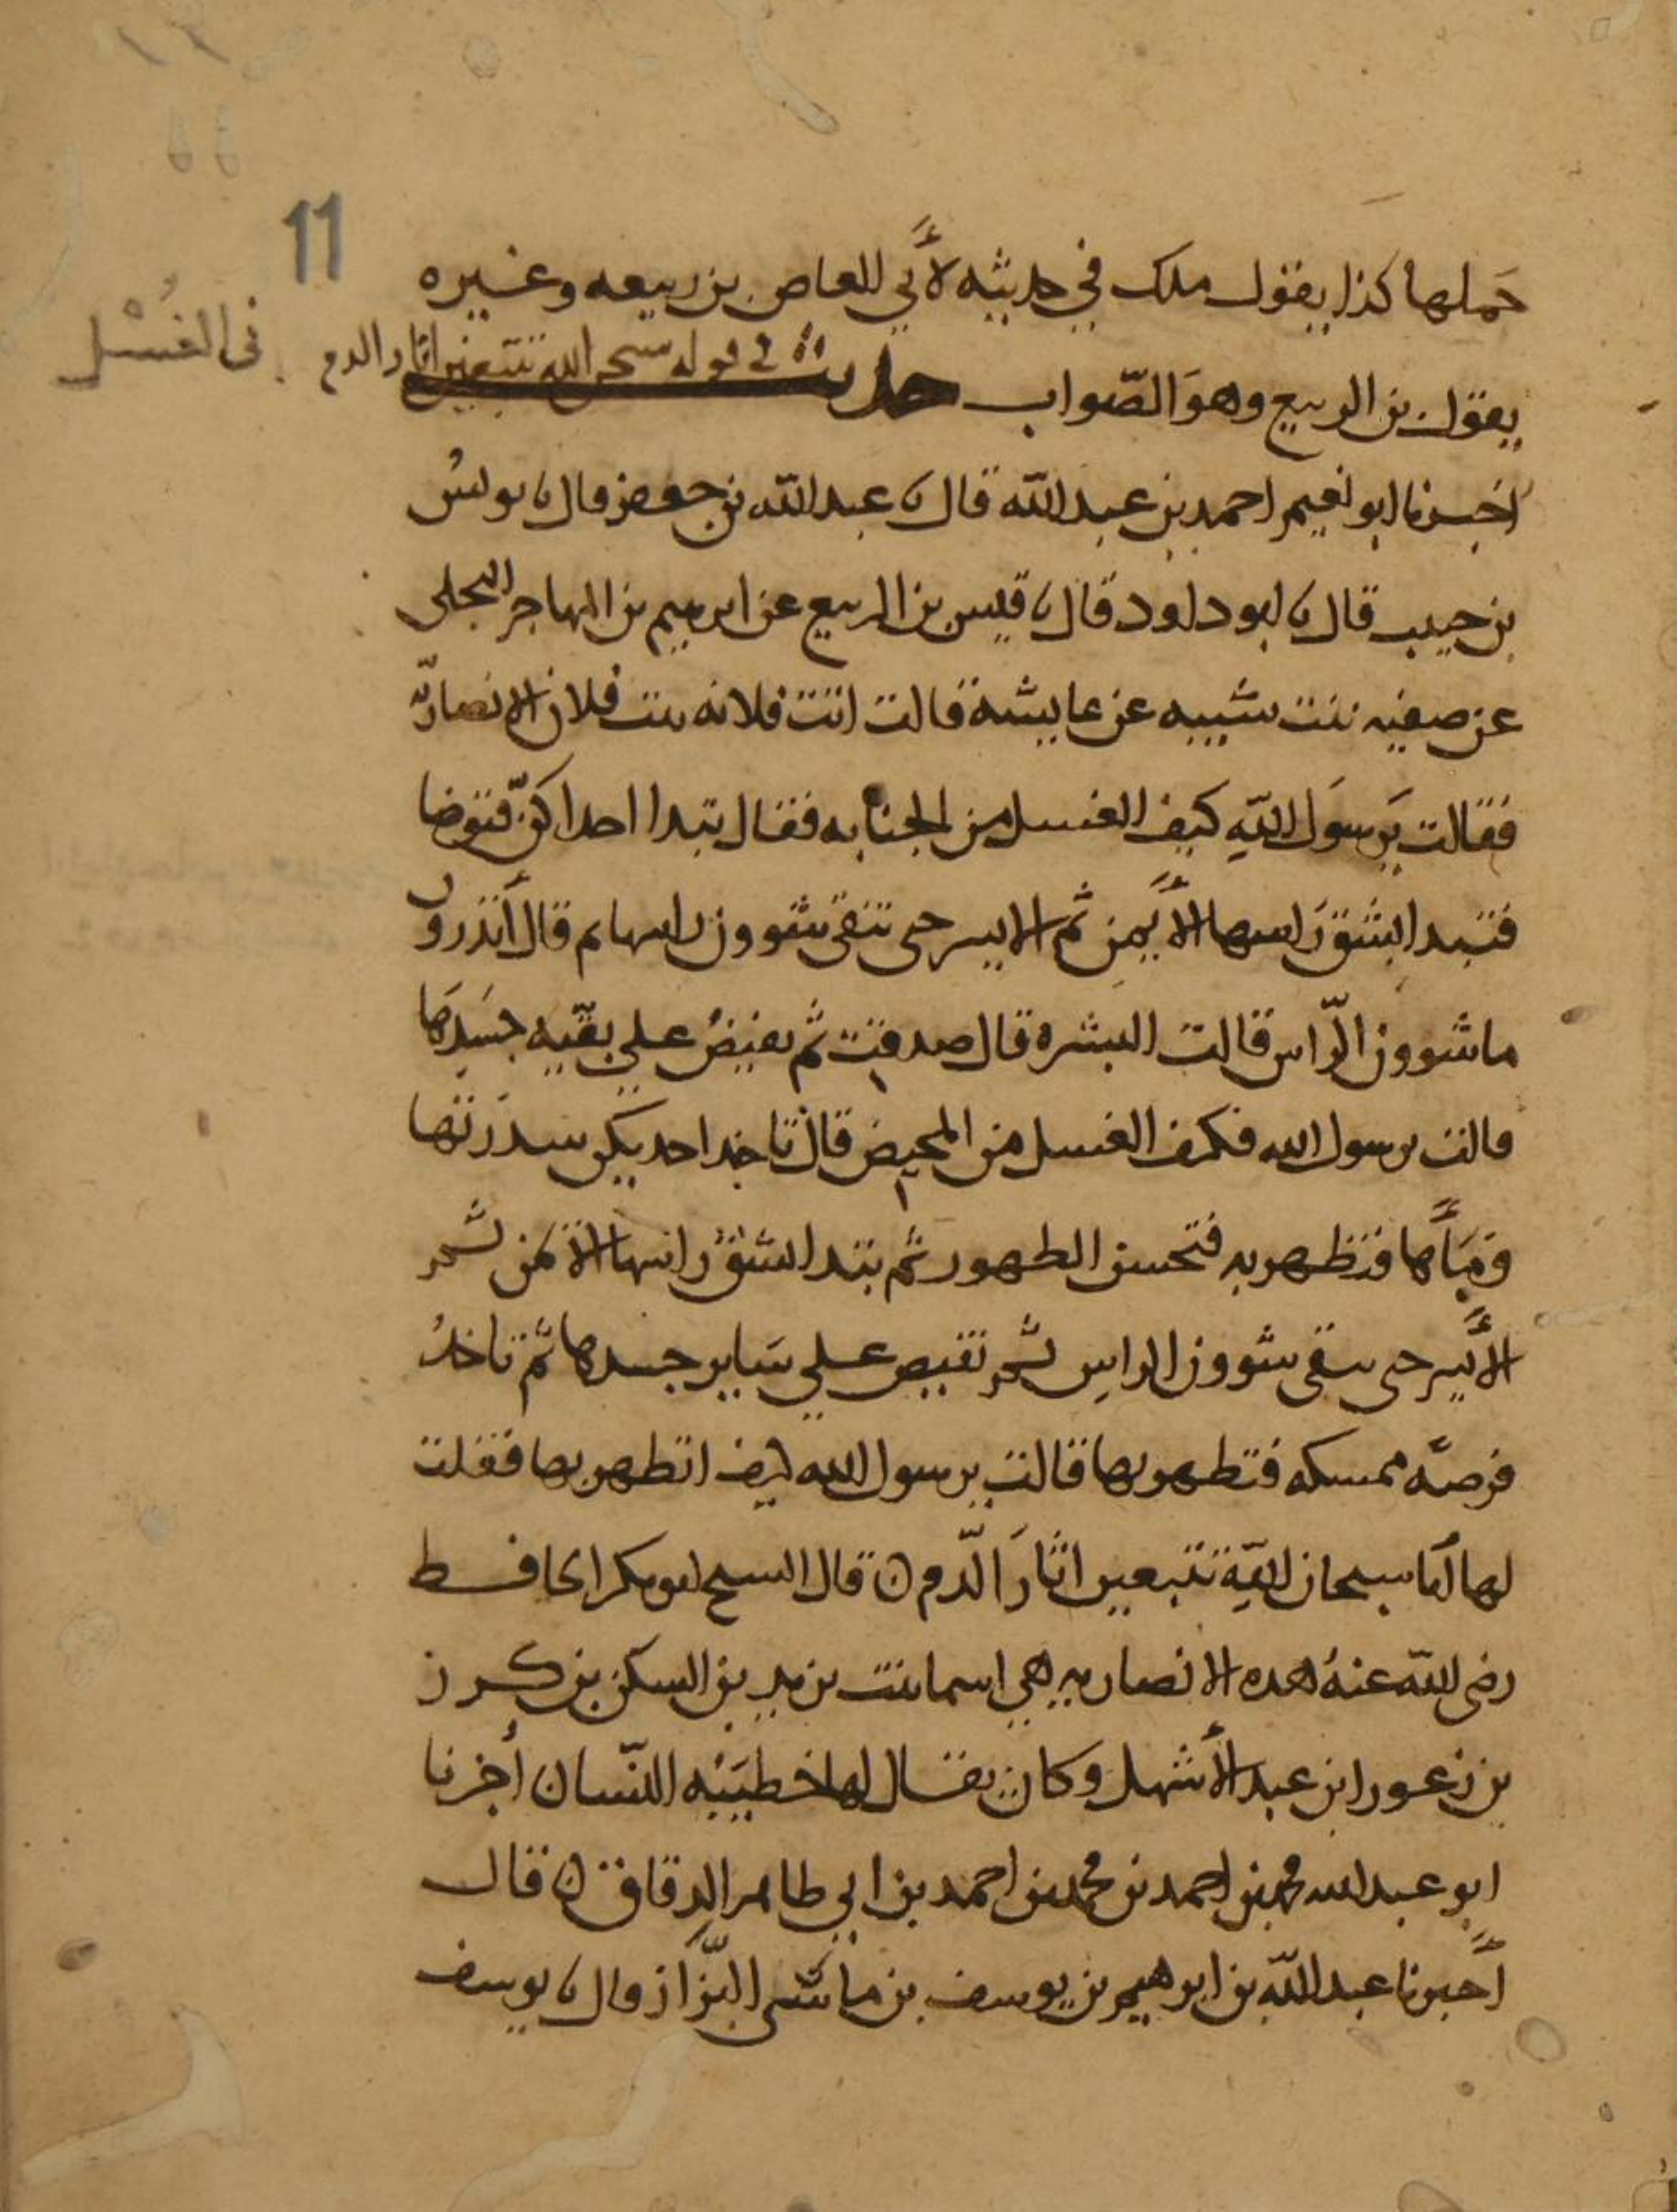 11
حَملها كذا يقول ملك في حديثه لأبي العاص بن ربيعه وغيره
يقول بن الربيع وهوَ الصّواب حديث في قوله سبحن الله تتبعين اثار الدم
في الغُسْل
اخبرنا ابو نعيم احمد بن عبد الله قال نا عبد الله بن جعفر قال نا يونسُ
بن حبيب قال نا ابو داود قال نا قيس بن الربيع عن ابرهيم بن المهاجر البجلى
عن صفيه بنت شيبه عن عايشة قالت اتت فلانه بنت فلان الانصاريّه
فقالت يَرسوَل اللهِ كيف الغسل من الجنابه فقال تبدا احداكنّ فتوضا
فتبدا بشق رَاسها الأيمنِ ثم الايسر حتى تنقى شوون راسها ثم قال أتذرون
ما شوون الرّاس قالت البشره قال صدقت ثم تفيضُ على بقيّه جسَدِهَا
قالت يرسول الله فكيف الغسل من المحيض قال تاخذ احديكن سدرَتها
وَمَآها فتطهر به فتحسن الطهور ثم تبدا بشق راسها الايمن ثم
الأيسر حتى تنقى شوون الراسِ ثم تفيض على سَاير جسدها ثم تاخذُ
فرصةً ممسكه فتطهر بها قالت يرسول الله كيف اتطهر بها فقلت
لها انا سبحان اللهِ تتبعين اثارَ الدّم ۞ قال الشيخ ابو بكر الحافظ
رضى الله عنهُ هده الانصاريه هي اسما بنت يزيد بن السكن بن كرز
بن زعورا بن عبد الأشهل وكان يقال لها خطيبَهُ النّسا ۞ أخبرنا
ابو عبد الله محمد بن احمد بن محمد بن احمد بن ابي طاهر الدقاق ۞ قال
أخبرنا عبد اللّه بن ابرهيم بن يوسف بن ماشى البزّاز قال نا يوسف